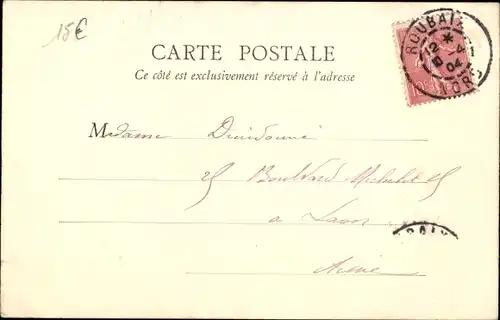 15€
ROUBAIX
12 * 4-1
04
NORD
CARTE POSTALE
Ce côté est exclusivement réservé à l'adresse
Madame Dieudonné
25 Boulevard Michelet 25
a Laon
Aisne